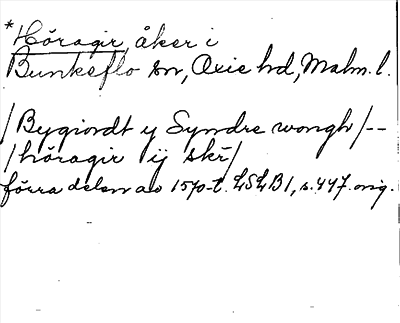 *Höragir, åker i
Bunkeflo sn, Oxie hd, Malm. l.
/Bygiordt y Syndre wongh/--
/höragir ij skr/
förra delen av 1570-t. LSLB1, s. 447. orig.